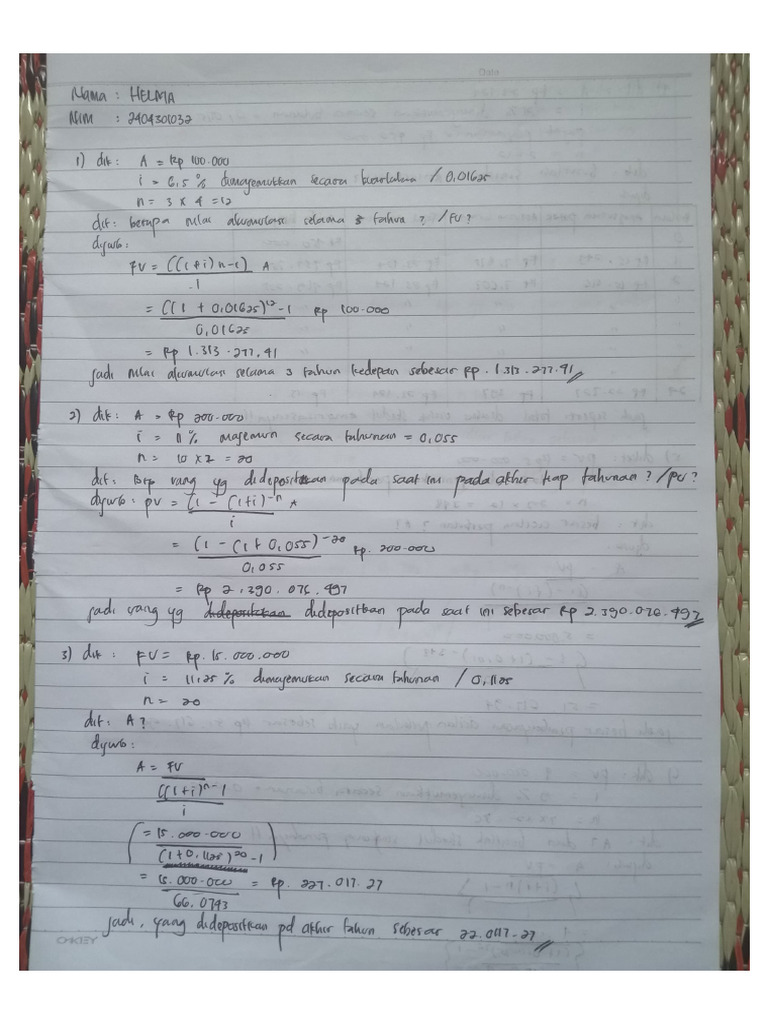 Date
Nama : HELMA
NIM : 2404301032
1) dik : A = Rp 100.000
i = 6,5 % dimajemukkan secara kuartalan / 0,01625
n = 3 x 4 = 12
dit : berapa nilai akumulasi selama 3 tahun ? / FV ?
dijwb :
FV = ((1+i) n-1) A
i
= ((1 + 0,01625)¹² -1 Rp 100.000
0,01625
= Rp 1.313.277.41
Jadi nilai akumulasi selama 3 tahun kedepan sebesar Rp. 1.313.277.41
2) dik : A = Rp 200.000
i = 11 % majemuk secara tahunan = 0,055
n = 10 x 2 = 20
dit : Brp uang yg didepositkan pada saat ini pada akhir tiap tahunan ? / PV ?
dijwb : PV = (1 - (1+i)⁻ⁿ A
i
= (1 - (1 + 0,055)⁻²⁰ Rp. 200.000
0,055
= Rp 2.390.076.497
Jadi uang yg didepositkan didepositkan pada saat ini sebesar Rp 2.390.076.497
3) dik : FV = Rp. 15.000.000
i = 11,25 % dimajemukan secara tahunan / 0,1125
n = 20
dit : A ?
dijwb :
A = FV
((1+i)ⁿ-1
i
= 15.000.000
(1+0,1125)²⁰ -1
= 15.000.000 = Rp. 227.017.27
66.0743
Jadi, yang didepositkan pd akhir tahun sebesar 22.017.27